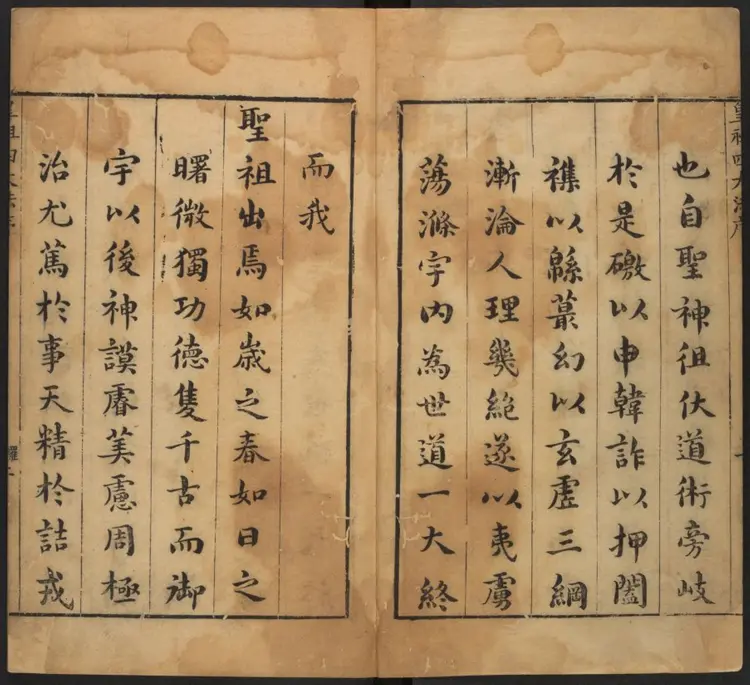 皇祖四大法序
也自聖神徂伏道術旁岐
於是礉以申韓詐以押闔
襍以緜蕞幻以玄虛三綱
漸淪人理幾絕遂以夷虜
蕩滌宇內為世道一大終
而我
聖祖出焉如歲之春如日之
曙微獨功德隻千古而御
宇以後神謨睿美慮周極
治尤篤於事天精於詰戎